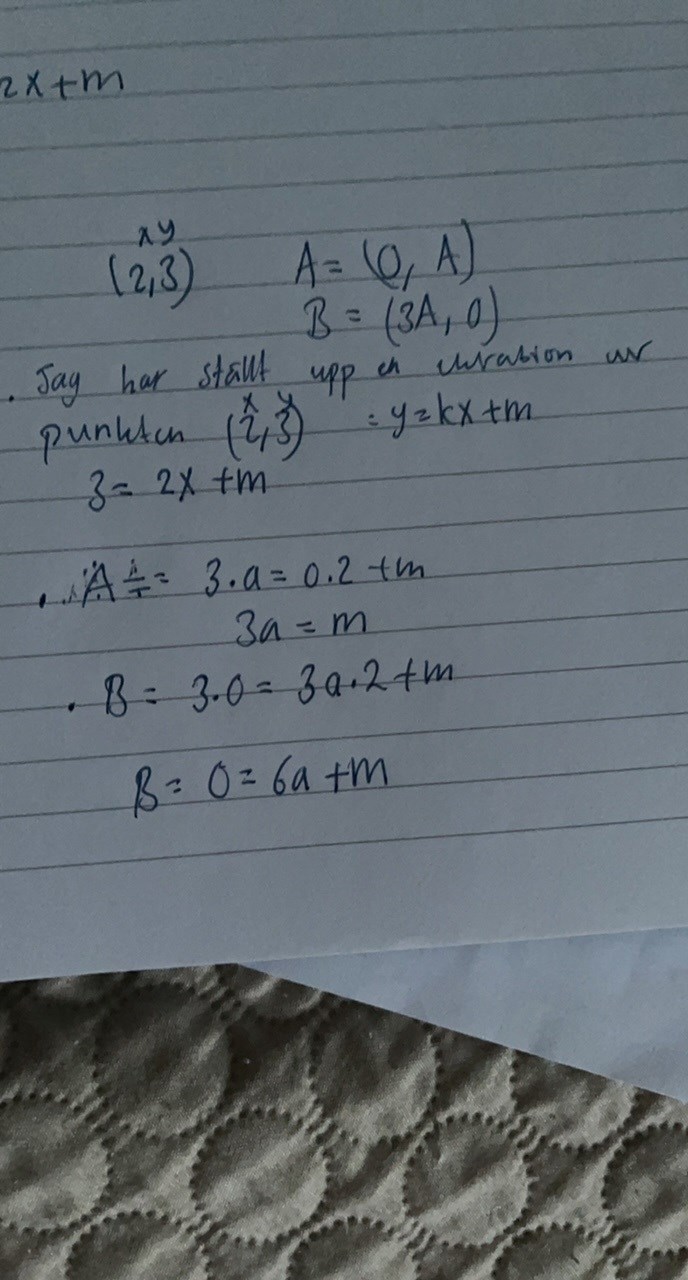 2x+m
x y
(2,3) A = (0, A)
B = (3A, 0)
. Jag har ställt upp en ekvation ur
x y
punkten (2,3) : y=kx+m
3= 2x +m
. A = 3.a = 0.2 +m
3a = m
. B = 3.0 = 3a.2 +m
B = 0 = 6a +m